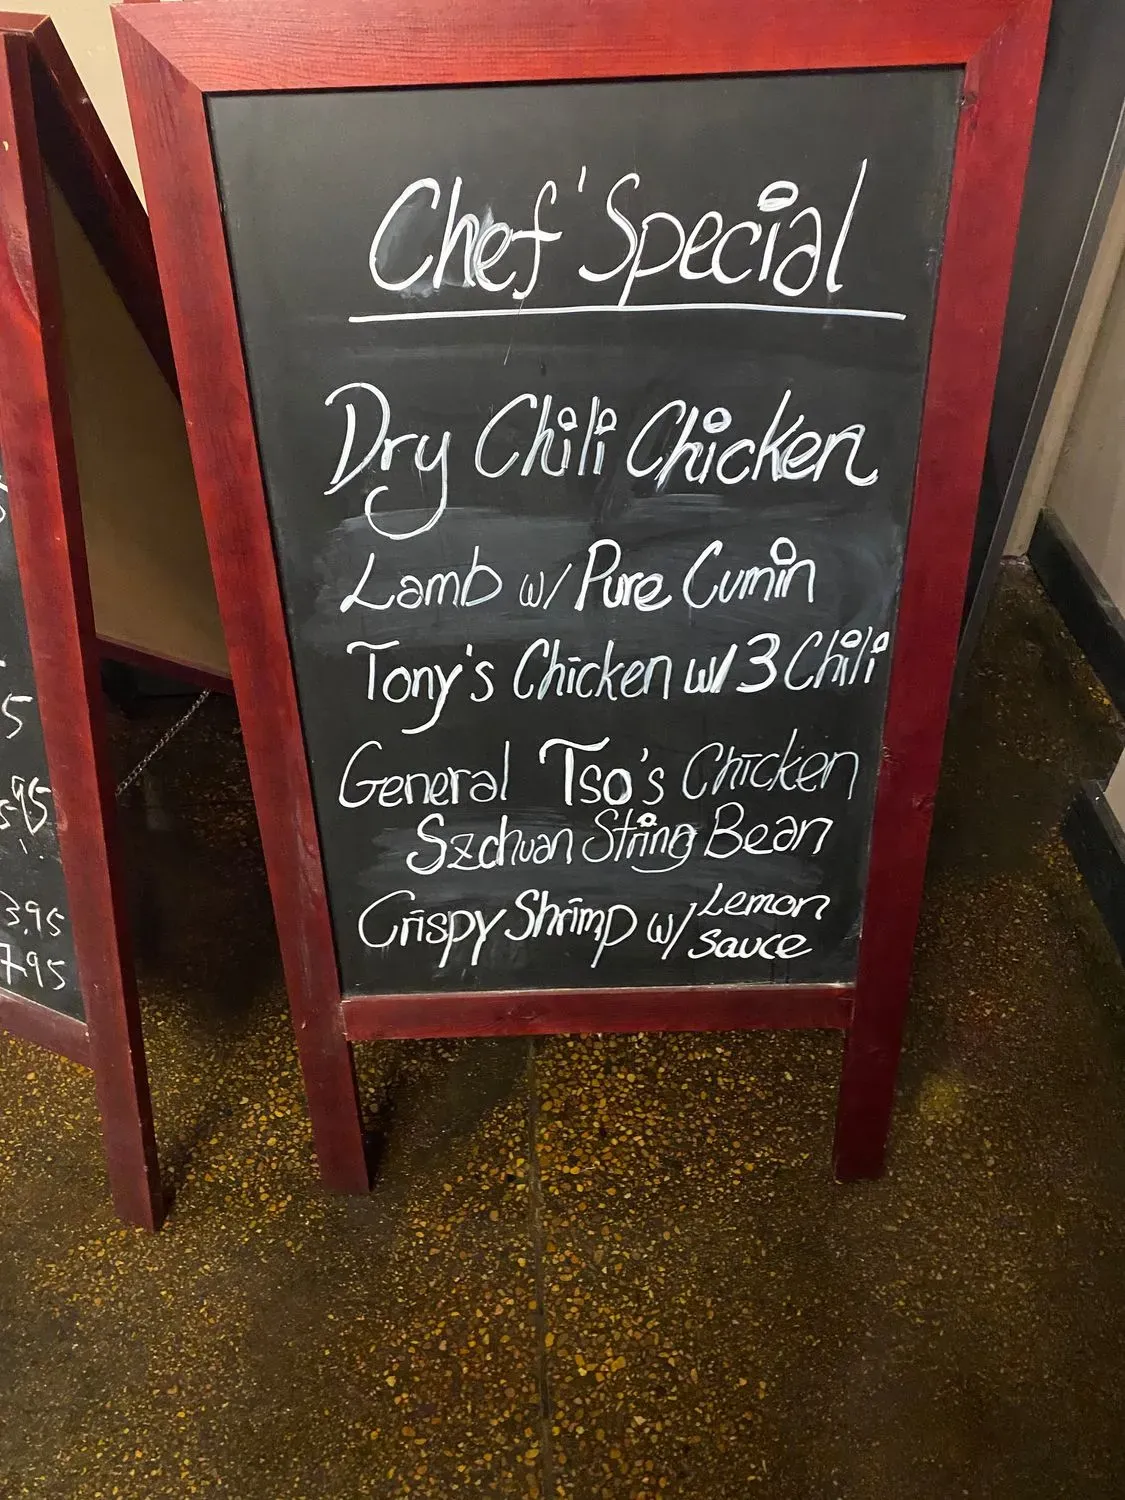 Chef' Special
Dry Chili Chicken
Lamb w/ Pure Cumin
Tony's Chicken w/ 3 Chili
General Tso's Chicken
Szchuan String Bean
Crispy Shrimp w/ Lemon
sauce
5
95
3.95
7.95